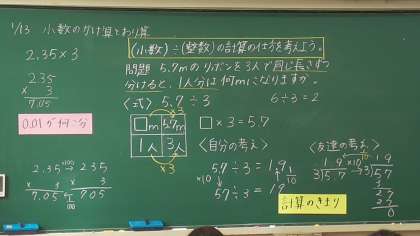 1/13 小数のかけ算とわり算
2.35×3
235
× 3
7.05
0.01が何こ分
2.35 ×100→ 235
× 3 × 3
7.05 ← 705
1/100
(小数)÷(整数)の計算の仕方を考えよう。
問題 5.7mのリボンを3人で同じ長さずつ
分けると、1人分は何mになりますか。
〈式〉5.7÷3
6÷3=2
×3
□m 5.7m
1人 3人
×3
□×3=5.7
〈自分の考え〉
5.7÷3=1.9
×10 1/10
57÷3=19
〈友達の考え〉
1.9 ×10 1.9
3)5.7 → 3)57
3
27
27
0
計算のきまり